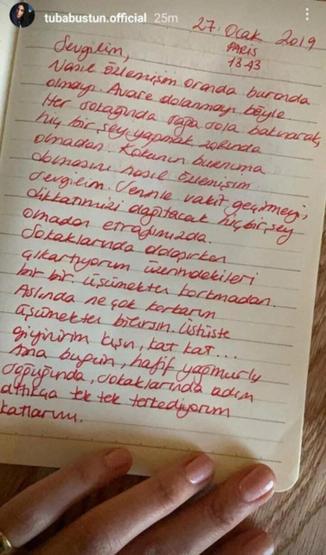 tubabustun.official 25m
27. Ocak 2019
PARİS
13.43
Sevgilim,
Nasıl özlemişim orada burada
olmayı. Avare dolanmayı böyle
Her sokağında sağa sola bakınarak,
hiç bir şey yapmak zorunda
olmadan. Kokunun burnuma
dolmasını nasıl özlemişim
sevgilim. Seninle vakit geçirmeyi,
dikkatimizi dağıtacak hiç bir şey
olmadan etrafımızda.
Sokaklarında dolaşırken
çıkartıyorum üzerimdekileri
bir bir üşümekten korkmadan.
Aslında ne çok korkarım
üşümekten bilirsin. Üstüste
giyinirim kışın, kat kat...
Ama bugün, hafif yağmurlu
soğuğunda, sokaklarında adım
attıkça tek tek terkediyorum
katlarımı.